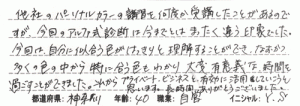 他社のパーソナルカラーの講習を何度か受講したことがあるので
すが、今回のアルファ式診断は今までとはまたく違う印象でした。
今回は、自分に似合う色がはっきりと理解することができ、なおかつ
多くの色の中から特に合う色をわかり、大変有意義な時間を
過ごすことができました。これからプライベート、ビジネスと、有効に活用していこうと
思います。長時間、ありがとうございました。
都道府県:神奈川 年齢:40 職業:自営 イニシャル:Y.S